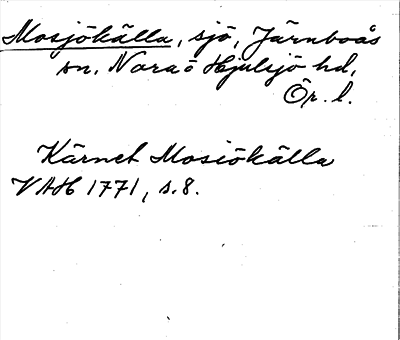 Mosjökälla, sjö, Järnboås
sn, Nora o Hjulsjö hd,
Ör. l.
Kärnet Mosiökälla
VAH 1771, s. 8.